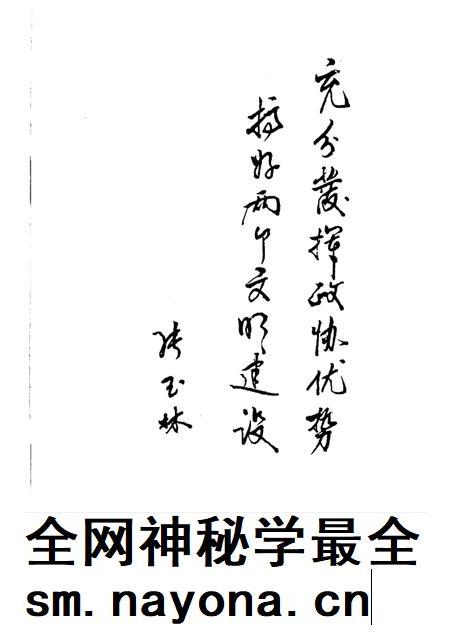 充分發挥政协优势
搞好两个文明建设
张玉林
全网神秘学最全
sm.nayona.cn